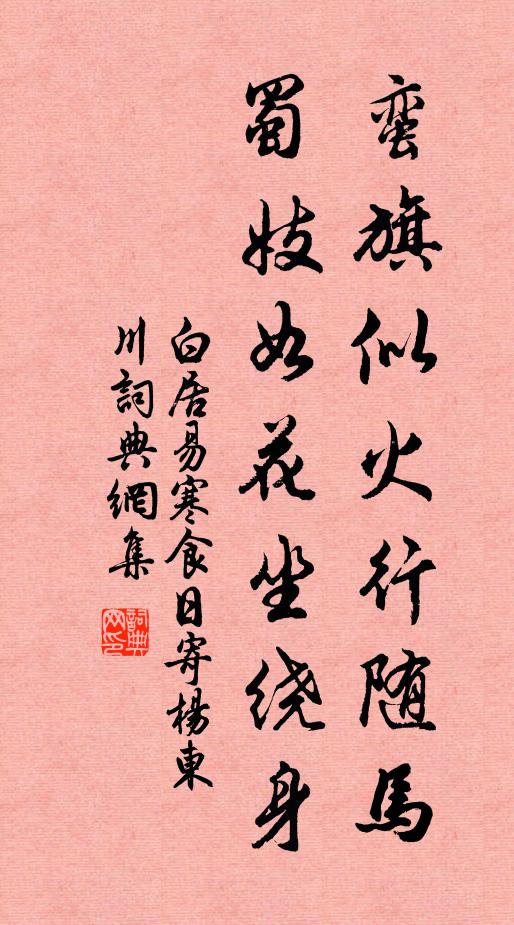 蛮旗似火行随馬
蜀妓如花坐绕身
白居易寒食日寄楊東
川詞典網集
詞典
网印